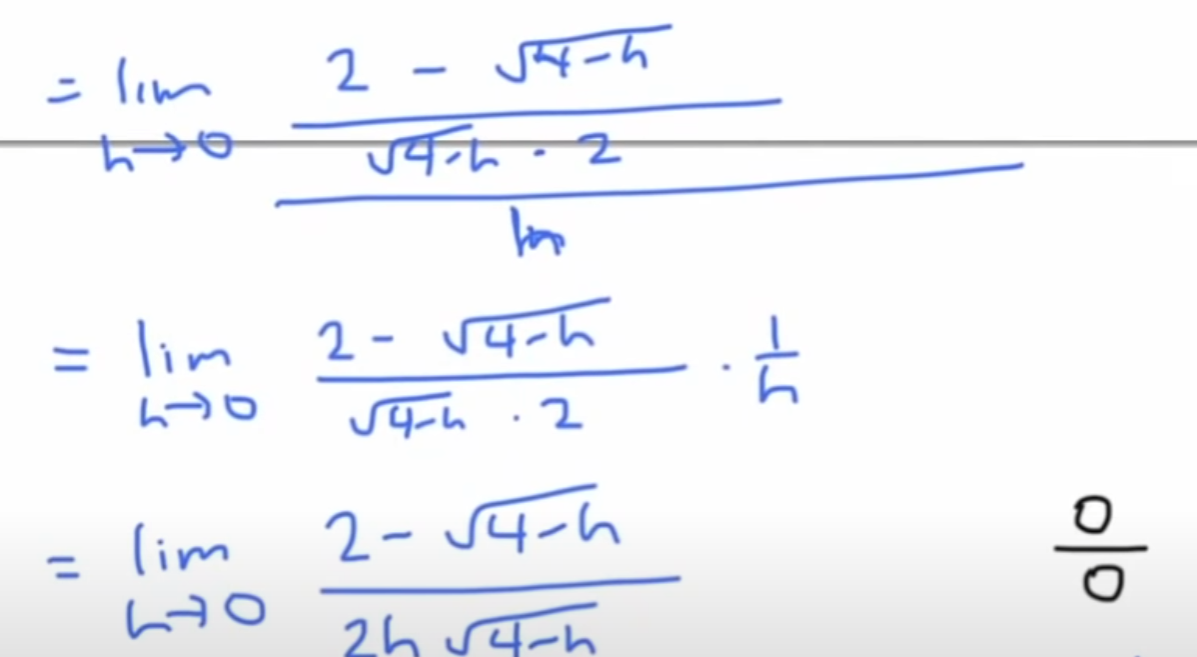 = lim h→0 ((2 - √(4-h)) / (√(4-h) · 2)) / h
= lim h→0 (2 - √(4-h)) / (√(4-h) · 2) · 1/h
= lim h→0 (2 - √(4-h)) / (2h √(4-h))
0/0